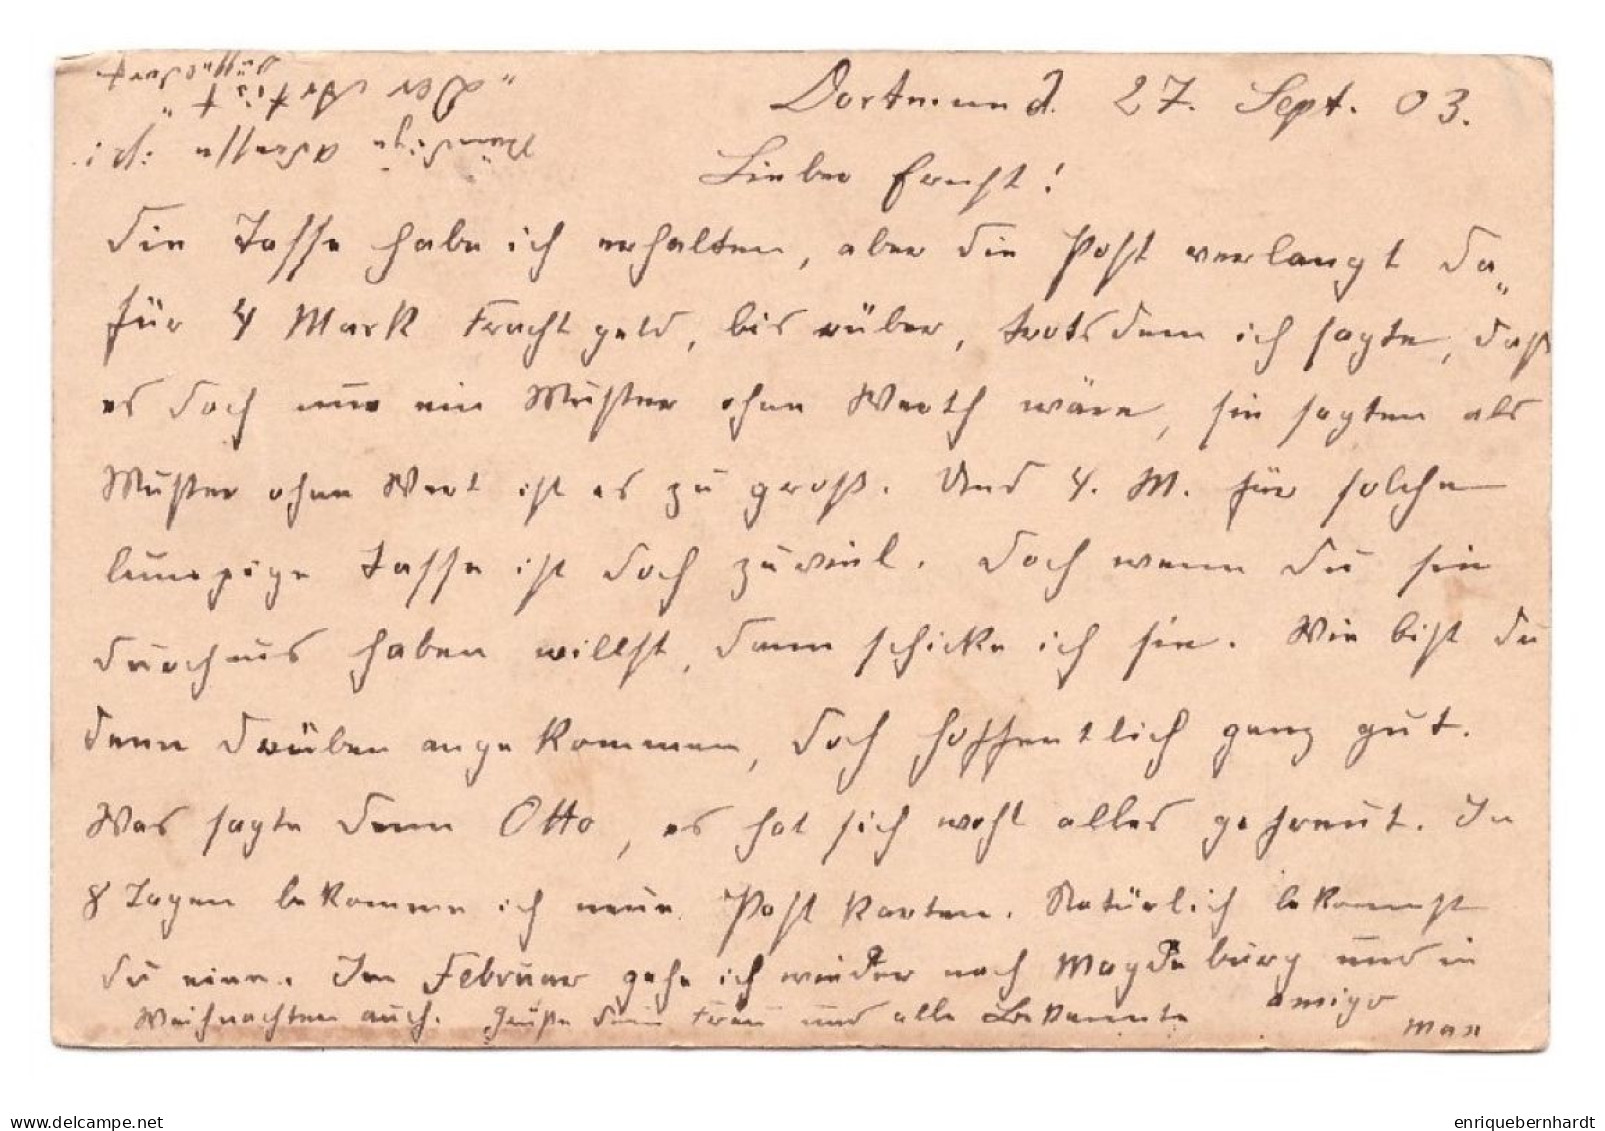 Dortmund. 27. Sept. 03.
Lieber Ernst!
Die Tasse habe ich erhalten, aber die Post verlangt da„
für 4 Mark Frachtgeld, bis rüber, trotsdem ich sagte, daß
es doch nur ein Muster ohne Werth wäre, sie sagten als
Muster ohne Wert ist es zu groß. Und 4. M. für solche
lumpige Tasse ist doch zuviel. Doch wenn du sie
durchaus haben willst, dann schicke ich sie. Wie bist du
denn drüben angekommen, doch hoffentlich ganz gut.
Was sagte denn Otto, es hat sich wohl alles gefreut. In
8 Tagen bekomme ich neue Postkarten. Natürlich bekommst
du eine. Im Februar gehe ich wieder nach Magdeburg und in
Weihnachten auch. Grüße dein Frau und alle Bekannte amigo
Max
adresse ist:
"Der Artist"
Düsseldorf
enriquebernhardt
www.delcampe.net